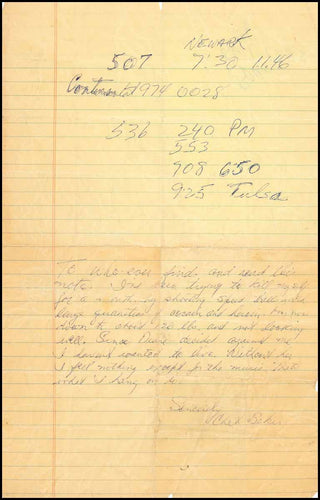 Newark
507 7:30 11:46
Continental 1974 0028
536 240 PM
553
908 650
925 Tulsa
To who-ever find and read this
note. I've been trying to kill myself
for a month shooting speed balls with
large quantities of cocaine and heroin. I'm now
down to about 120 lbs. and not looking
well. Since Diane decided against me
I haven't wanted to live. Without her
I feel nothing except for the music. That's
what I hang on to.
Sincerely
Chet Baker